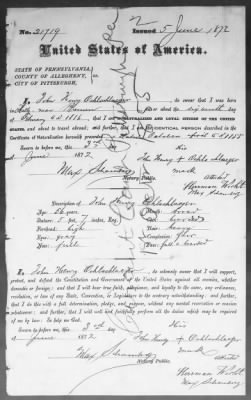 No. 21719 Issued 5 June 1872
United States of America.
STATE OF PENNSYLVANIA,
COUNTY OF ALLEGHENY, ss.
CITY OF PITTSBURGH,
I, John Henry Oehlschlaeger do swear that I was born
in near Bremen on or about the sixteenth day of
February A.D. 1816, that I am a NATURALIZED AND LOYAL CITIZEN OF THE UNITED
STATES, and about to travel abroad, and further that I am the IDENTICAL PERSON described in the
Certificate of Naturalization herewith presented
Sworn to before me, this 3rd day of
June 1872
John Henry + Oehlschlaeger
his
mark
Max Schamberg
Notary Public.
Attest
Herman
Max Schamberg
Description of John Henry Oehlschlaeger
Age: 56 years Mouth: broad
Stature: 5 ft. 7 inches, Eng. Chin: bearded
Forehead: high Hair: heavy
Eyes: gray Complexion: fair
Nose: full Face: full & bearded
I, John Henry Oehlschlaeger do solemnly swear that I will support,
protect, and defend the Constitution and Government of the United States against all enemies, whether
domestic or foreign; and that I will bear true faith, allegiance, and loyalty to the same, any ordinance,
resolution, or law of any State, Convention, or Legislature to the contrary notwithstanding; and further,
that I do this with a full determination, pledge, and purpose, without any mental reservation or evasion
whatsoever; and further, that I will well and faithfully perform all the duties which may be required
of me by law: So help me God.
Sworn to before me, this 3rd day of
June 1872
his
John Henry + Oehlschlaeger
mark
Max Schamberg
Notary Public.
Attest
Herman
Max Schamberg